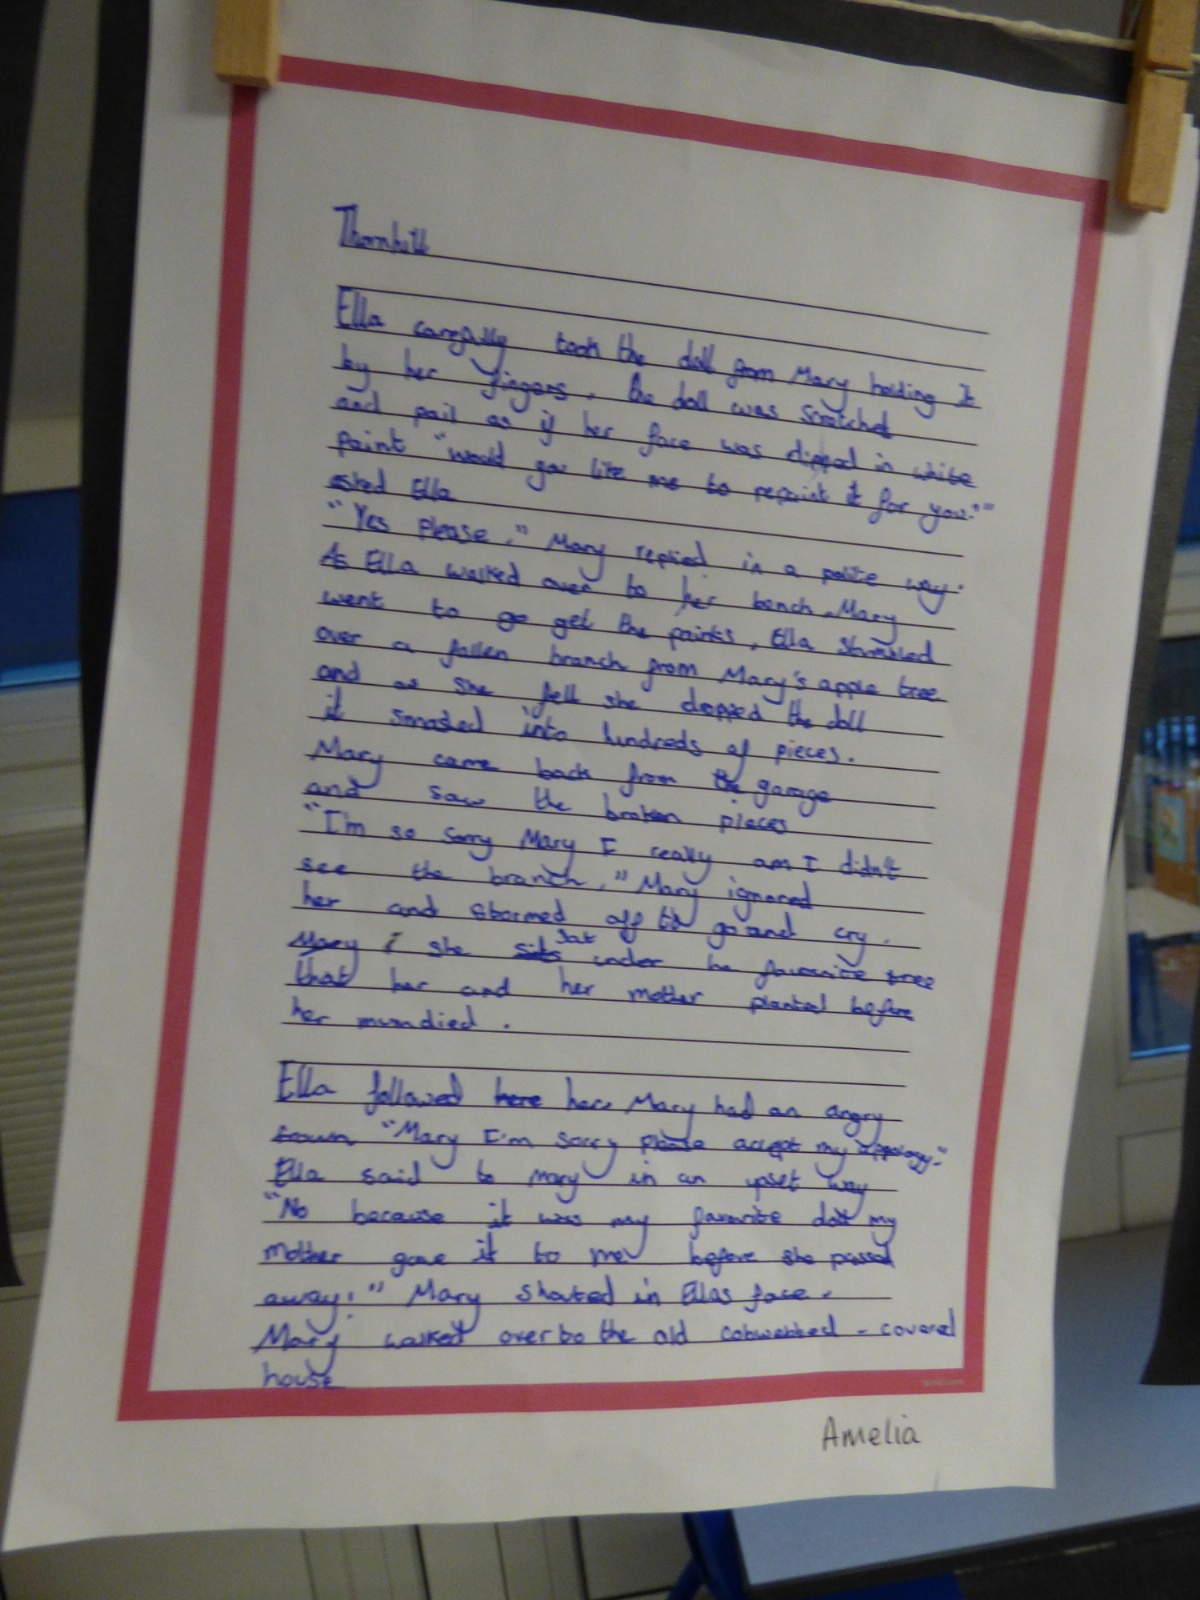 Thornhill
Ella carefully took the doll from Mary holding It
by her fingers. the doll was scratched
and pail as if her face was dipped in white
paint "would you like me to repaint it for you."
asked Ella
"Yes please," Mary replied in a polite way.
As Ella walked over to her bench Mary
went to go get the paints, Ella stumbled
over a fallen branch from Mary's apple tree
and as she fell she dropped the doll
it smashed into hundreds of pieces.
Mary came back from the garage
and saw the broken pieces
"I'm so sorry Mary I really am I didn't
see the branch," Mary ignored
her and stormed off to go and cry.
sat
Mary she sits under he favourite tree
that her and her mother planted before
her mum died.
Ella followed here her. Mary had an angry
"Mary I'm sorry please accept my appology."
Ella said to mary in an upset way
"No because it was my favorite doll my
mother gave it to me before she passed
away!" Mary shouted in Ellas face.
Mary walked over to the old cobwebbed - covered
house
Amelia